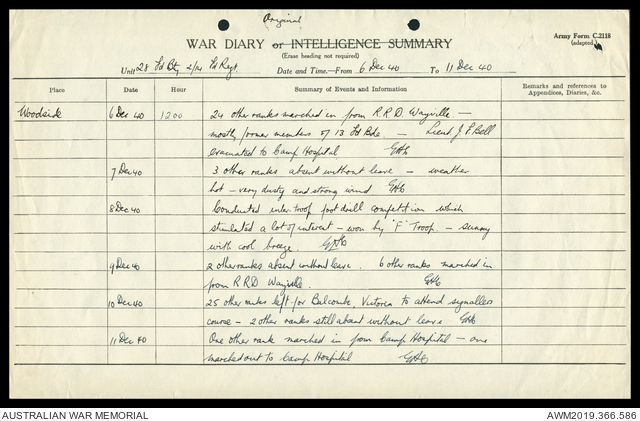 Original
Army Form C.2118
(adapted)
WAR DIARY or INTELLIGENCE SUMMARY
(Erase heading not required)
Unit 28 Fd Bty 2/14 Fd Regt Date and Time.—From 6 Dec 40 To 11 Dec 40
Place Date Hour Summary of Events and Information Remarks and references to Appendices, Diaries, &c.
Woodside 6 Dec 40 1200 24 other ranks marched in from R.R.D. Wayville —
mostly former members of 13 Fd Bde — Lieut. J F Bell
evacuated to Camp Hospital
7 Dec 40 3 other ranks absent without leave — weather
hot — very dusty and strong wind
8 Dec 40 Conducted inter-troop foot drill competition which
stimulated a lot of interest — won by "F" Troop — sunny
with cool breeze.
9 Dec 40 2 other ranks absent without leave. 6 other ranks marched in
from R.R.D Wayville.
10 Dec 40 25 other ranks left for Balcombe, Victoria to attend signallers
course — 2 other ranks still absent without leave
11 Dec 40 One other rank marched in from Camp Hospital — one
marched out to Camp Hospital
AUSTRALIAN WAR MEMORIAL AWM2019.366.586